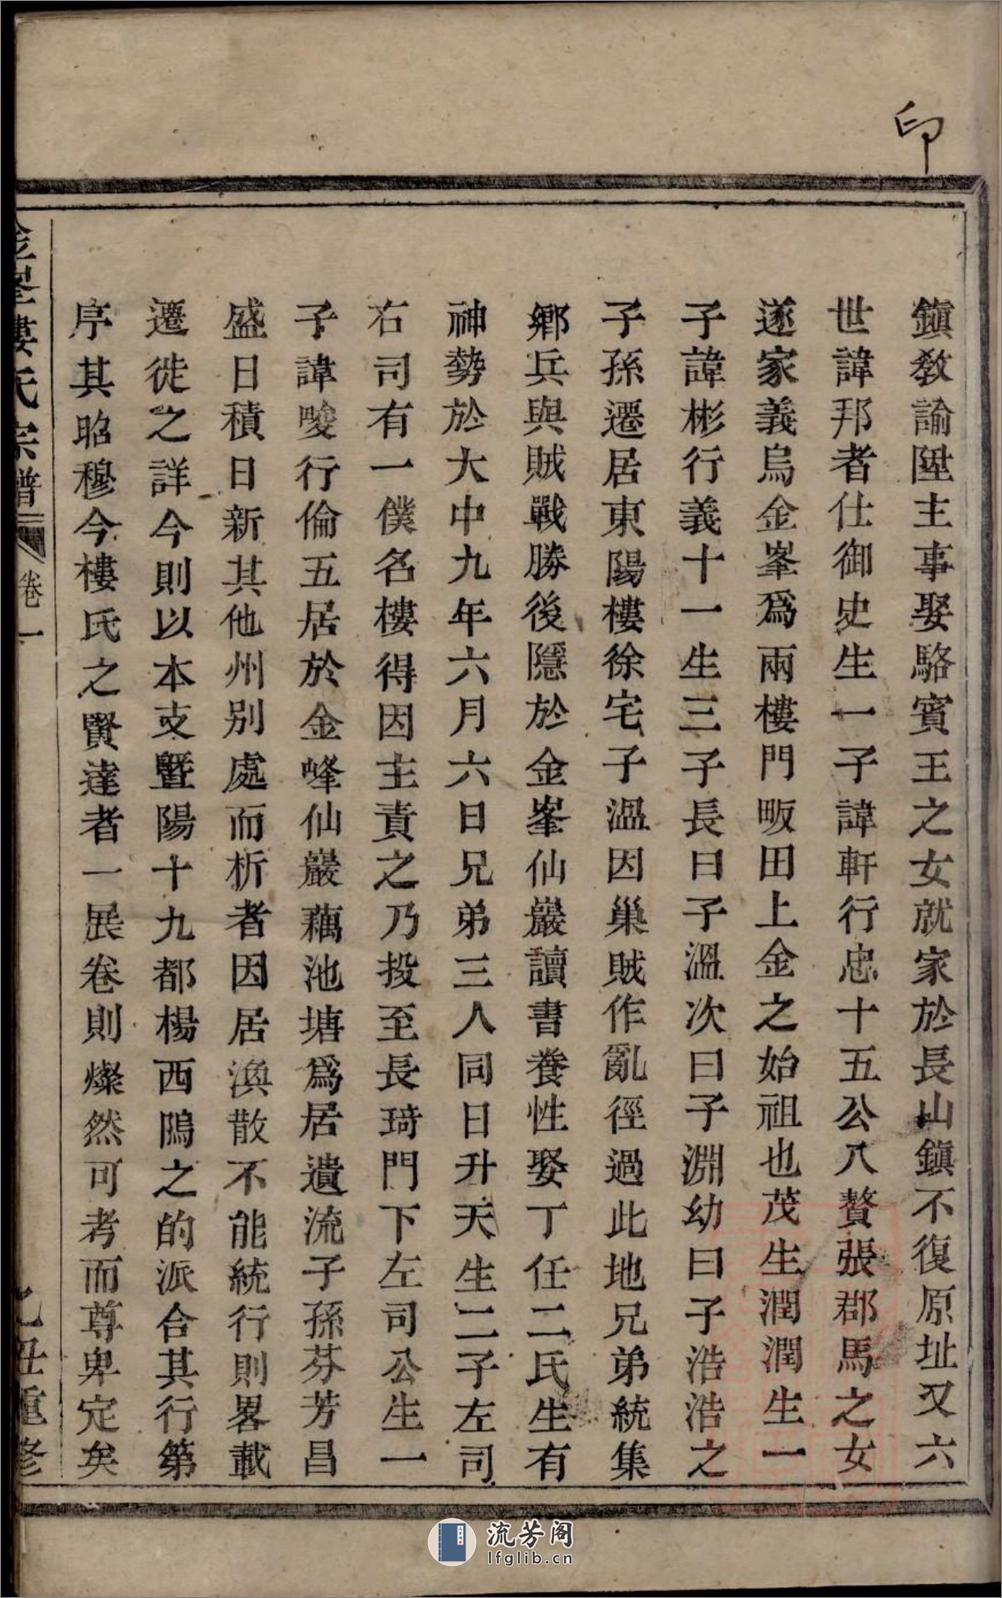 印
鎮教諭陞主事娶駱賓王之女就家於長山鎮不復原址又六
世諱邦者仕御史生一子諱軒行忠十五公入贅張郡馬之女
遂家義烏金峯爲兩樓門畈田上金之始祖也茂生潤潤生一
子諱彬行義十一生三子長曰子溫次曰子淵幼曰子浩浩之
子孫遷居東陽樓徐宅子溫因巢賊作亂徑過此地兄弟統集
鄉兵與賊戰勝後隱於金峯仙巖讀書養性娶丁任二氏生有
神勢於大中九年六月六日兄弟三人同日升天生二子左司
右司有一僕名樓得因主責之乃投至長琦門下左司公生一
子諱唆行倫五居於金峰仙巖藕池塘爲居遺流子孫芬芳昌
盛日積日新其他州別處而析者因居渙散不能統行則畧載
遷徙之詳今則以本支暨陽十九都楊西隖之的派合其行第
序其昭穆今樓氏之賢達者一展卷則燦然可考而尊卑定矣
金峯樓氏宗譜 卷一 乙丑重修
流芳阁
lfglib.cn